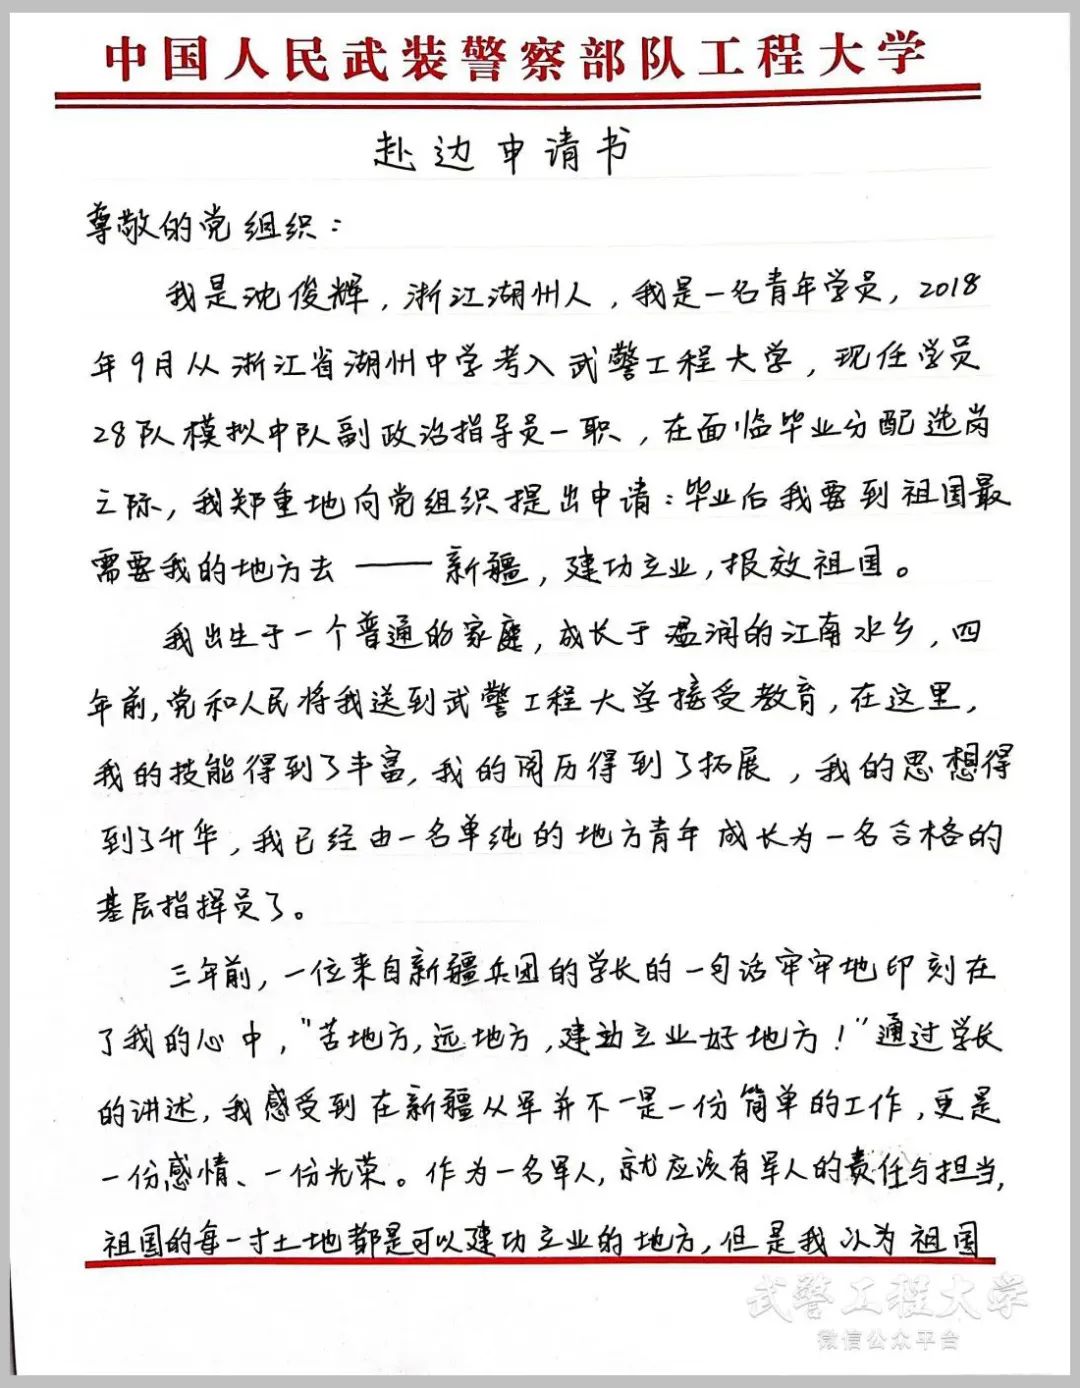 中国人民武装警察部队工程大学
赴边申请书
尊敬的党组织：
我是沈俊辉，浙江湖州人，我是一名青年学员，2018
年9月从浙江省湖州中学考入武警工程大学，现任学员
28队模拟中队副政治指导员一职，在面临毕业分配选岗
之际，我郑重地向党组织提出申请：毕业后我要到祖国最
需要我的地方去——新疆，建功立业，报效祖国。
我出生于一个普通的家庭，成长于温润的江南水乡，四
年前，党和人民将我送到武警工程大学接受教育，在这里，
我的技能得到了丰富，我的阅历得到了拓展，我的思想得
到了升华，我已经由一名单纯的地方青年成长为一名合格的
基层指挥员了。
三年前，一位来自新疆兵团的学长的一句话牢牢地印刻在
了我的心中，“苦地方，远地方，建功立业好地方！”通过学长
的讲述，我感受到在新疆从军并不是一份简单的工作，更是
一份感情、一份光荣。作为一名军人，就应该有军人的责任与担当，
祖国的每一寸土地都是可以建功立业的地方，但是我认为祖国
武警工程大学
微信公众平台